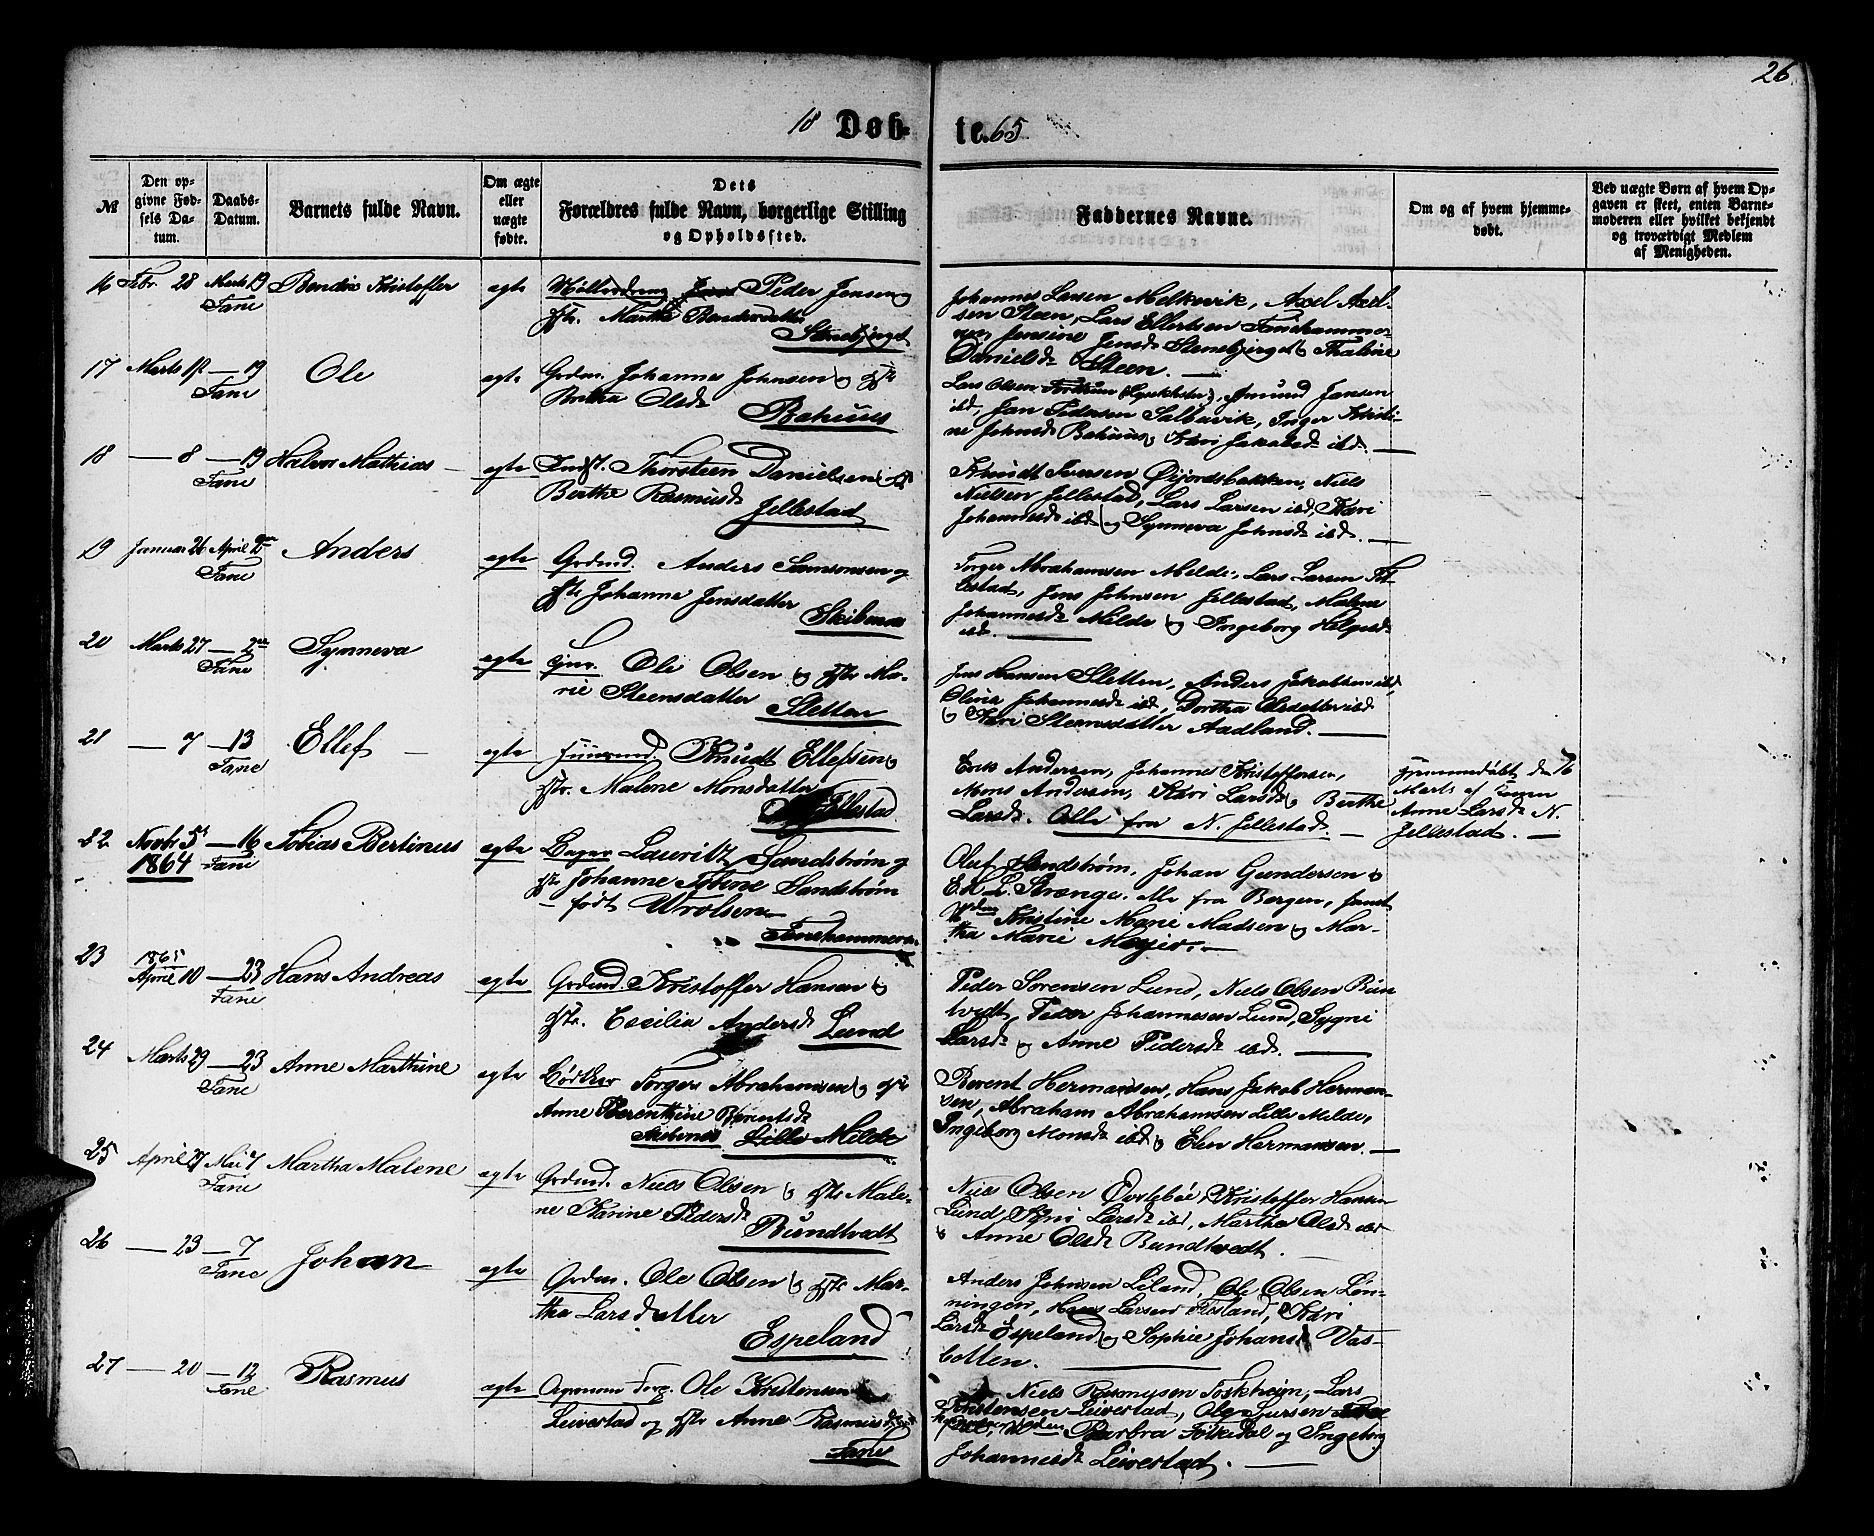 26
18 Døb- te. 65
№
Den op-
givne Fød-
sels Da-
tum.
Daabs-
Datum.
Barnets fulde Navn.
Om ægte
eller
uægte
fødte.
Dets
Forældres fulde Navn, borgerlige Stilling
og Opholdssted.
Faddernes Navne.
Om og af hvem hjemme-
døbt.
Ved uægte Børn af hvem Op-
gaven er sket, enten Barne-
moderen eller hvilket bekjendt
og troværdigt Medlem
af Menigheden.
16 Febr. 28 Marts 19 Bendix Kristoffer ægte Peder Jensen og
Fane
Hstr. Marthe Bendixdatter
Stenebjerget
Johannes Larsen Melkevik, Axel Axel-
sen Steen, Lars Ellertsen Fanehammer-
en, Jensine Jensd Stenebjerget og Thaline
Danielsd Steen.
17 Marts 1st — 19 Ole ægte Grdm. Johannes Johnsen og Hstr
Fane
Brita Olsd
Rahuus
Lars Olsen Amund Jansen
ibd, Jan Pedersen Salbuvik, Inger Kristi-
ne Johnsd Rahuus og Kari Jakobsd ibd.
18 — 8 — 19 Halvor Mathias ægte Indst. Thorsteen Danielsen og Hstr
Fane
Berthe Rasmusd
Jellestad
Knudt Iversen Øijordsbakken, Niels
Nielsen Jellestad, Lars Larsen ibd, Kari
Johannesd ibd og Synneva Johnsd ibd.
19 Januar 26 April 2den Anders ægte Grdmd. Anders Samsonsen og
Fane
Hstr Johanne Jensdatter
Skibenes
Torger Abrahamsen Milde, Lars Larsen Jel-
lestad, Jens Johnsen Jellestad, Malene
Johannesd Milde og Ingeborg Helgesd
ibd.
20 Marts 27 — 2den Synneva ægte Ole Olsen og Hstr Ma-
Fane
rie Steensdatter
Sletten
Jens Hansen Sletten, Anders Jakobsen ibd,
Olina Johannesd ibd, Dorthea Olsdatter ibd
og Kari Steensdatter Aadland.
21 — 7 — 13 Ellef ægte Huusmd. Knudt Ellefsen og
Fane
Hstr. Malene Monsdatter
N. Jellestad
Erik Andersen, Johannes Kristoffersen,
Mons Andersen, Kari Larsd og Berthe
Larsd. Alle fra N. Jellestad.
Hjemmedøbt den 16
Marts af
Anne Larsd N.
Jellestad.
22 Novbr 5te — 16 Tobias Bertinus ægte Bager Lauritz Sandstrøm og
1864 Fane
Hstr Johanne Sandstrøm
— født Wrolsen
Fanehammeren
Oluf Sandstrøm, Johan Gundersen og
E. H. L. Strange. Alle fra Bergen, samt
Kristine Marie Madsen og Mar-
tha Marie Meyer.
23 1865 April 10 — 23 Hans Andreas ægte Grdmd. Kristoffer Hansen og
Fane
Hstr. Cecilia Andersd Lund
Peder Sørensen Lund, Niels Olsen Bun-
tvedt, Peder Johannesen Lund, Sygni
Larsd og Anne Pedersd ibd.
24 Marts 29 — 23 Anne Marthine ægte Bødker Torger Abrahamsen og Hstr
Fane
Anne Berenthine Berentsd
Skibenes Lille Milde
Berent Hermansen, Hans Jakob Herman-
sen, Abraham Abrahamsen Lille Milde,
Ingeborg Monsd ibd og Elen Hermansen.
25 April 27 Mai 7 Martha Malene ægte Grdmd. Niels Olsen og Hstr Male-
Fane
ne Karine Pedersd
Bundtvedt
Niels Olsen Øvrebøe, Kristoffer Hansen
Lund, Sygni Larsd ibd, Marthe Olsd ibd
og Anne Olsd Bundtvedt.
26 — 23 — 7 Johan ægte Grdm. Ole Olsen og Hstr Mar-
Fane
tha Larsdatter
Espeland
Anders Johnsen Liland, Ole Olsen Løn-
ningen, Hans Larsen Flesland, Kari
Larsd Espeland og Sophie Johansd Vas-
botten.
27 — 20 — 12 Rasmus ægte Agronom Ole Kristensen
Fane
Leirestad og Hstr Anne Rasmusd
Fane
Niels Rasmussen Toskheim, Lars
Kristensen Leirestad, Ole Sjursen
Barbra Folkedal og Ingeborg
Johannesd Leirestad.